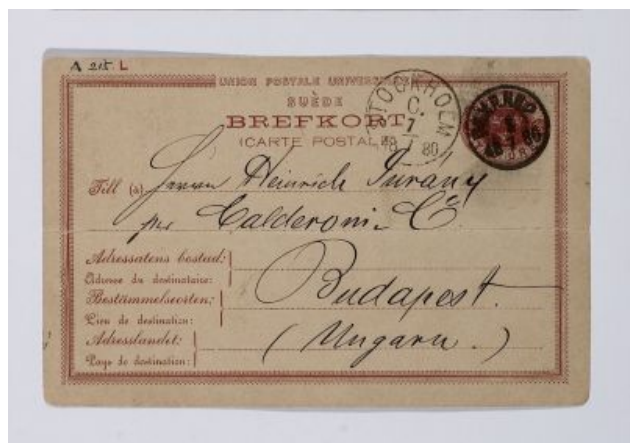 A 215 L
UNION POSTALE UNIVERSELLE
SUÈDE
BREFKORT
(CARTE POSTALE)
STOCKHOLM
C.
7
18 80
Till (à) Herrn Heinrich Jurany
per Calderoni & Co
Adressatens bostad:
Adresse du destinataire:
Bestämmelseorten:
Budapest.
Lieu de destination:
Adresslandet:
(Ungarn.)
Pays de destination: